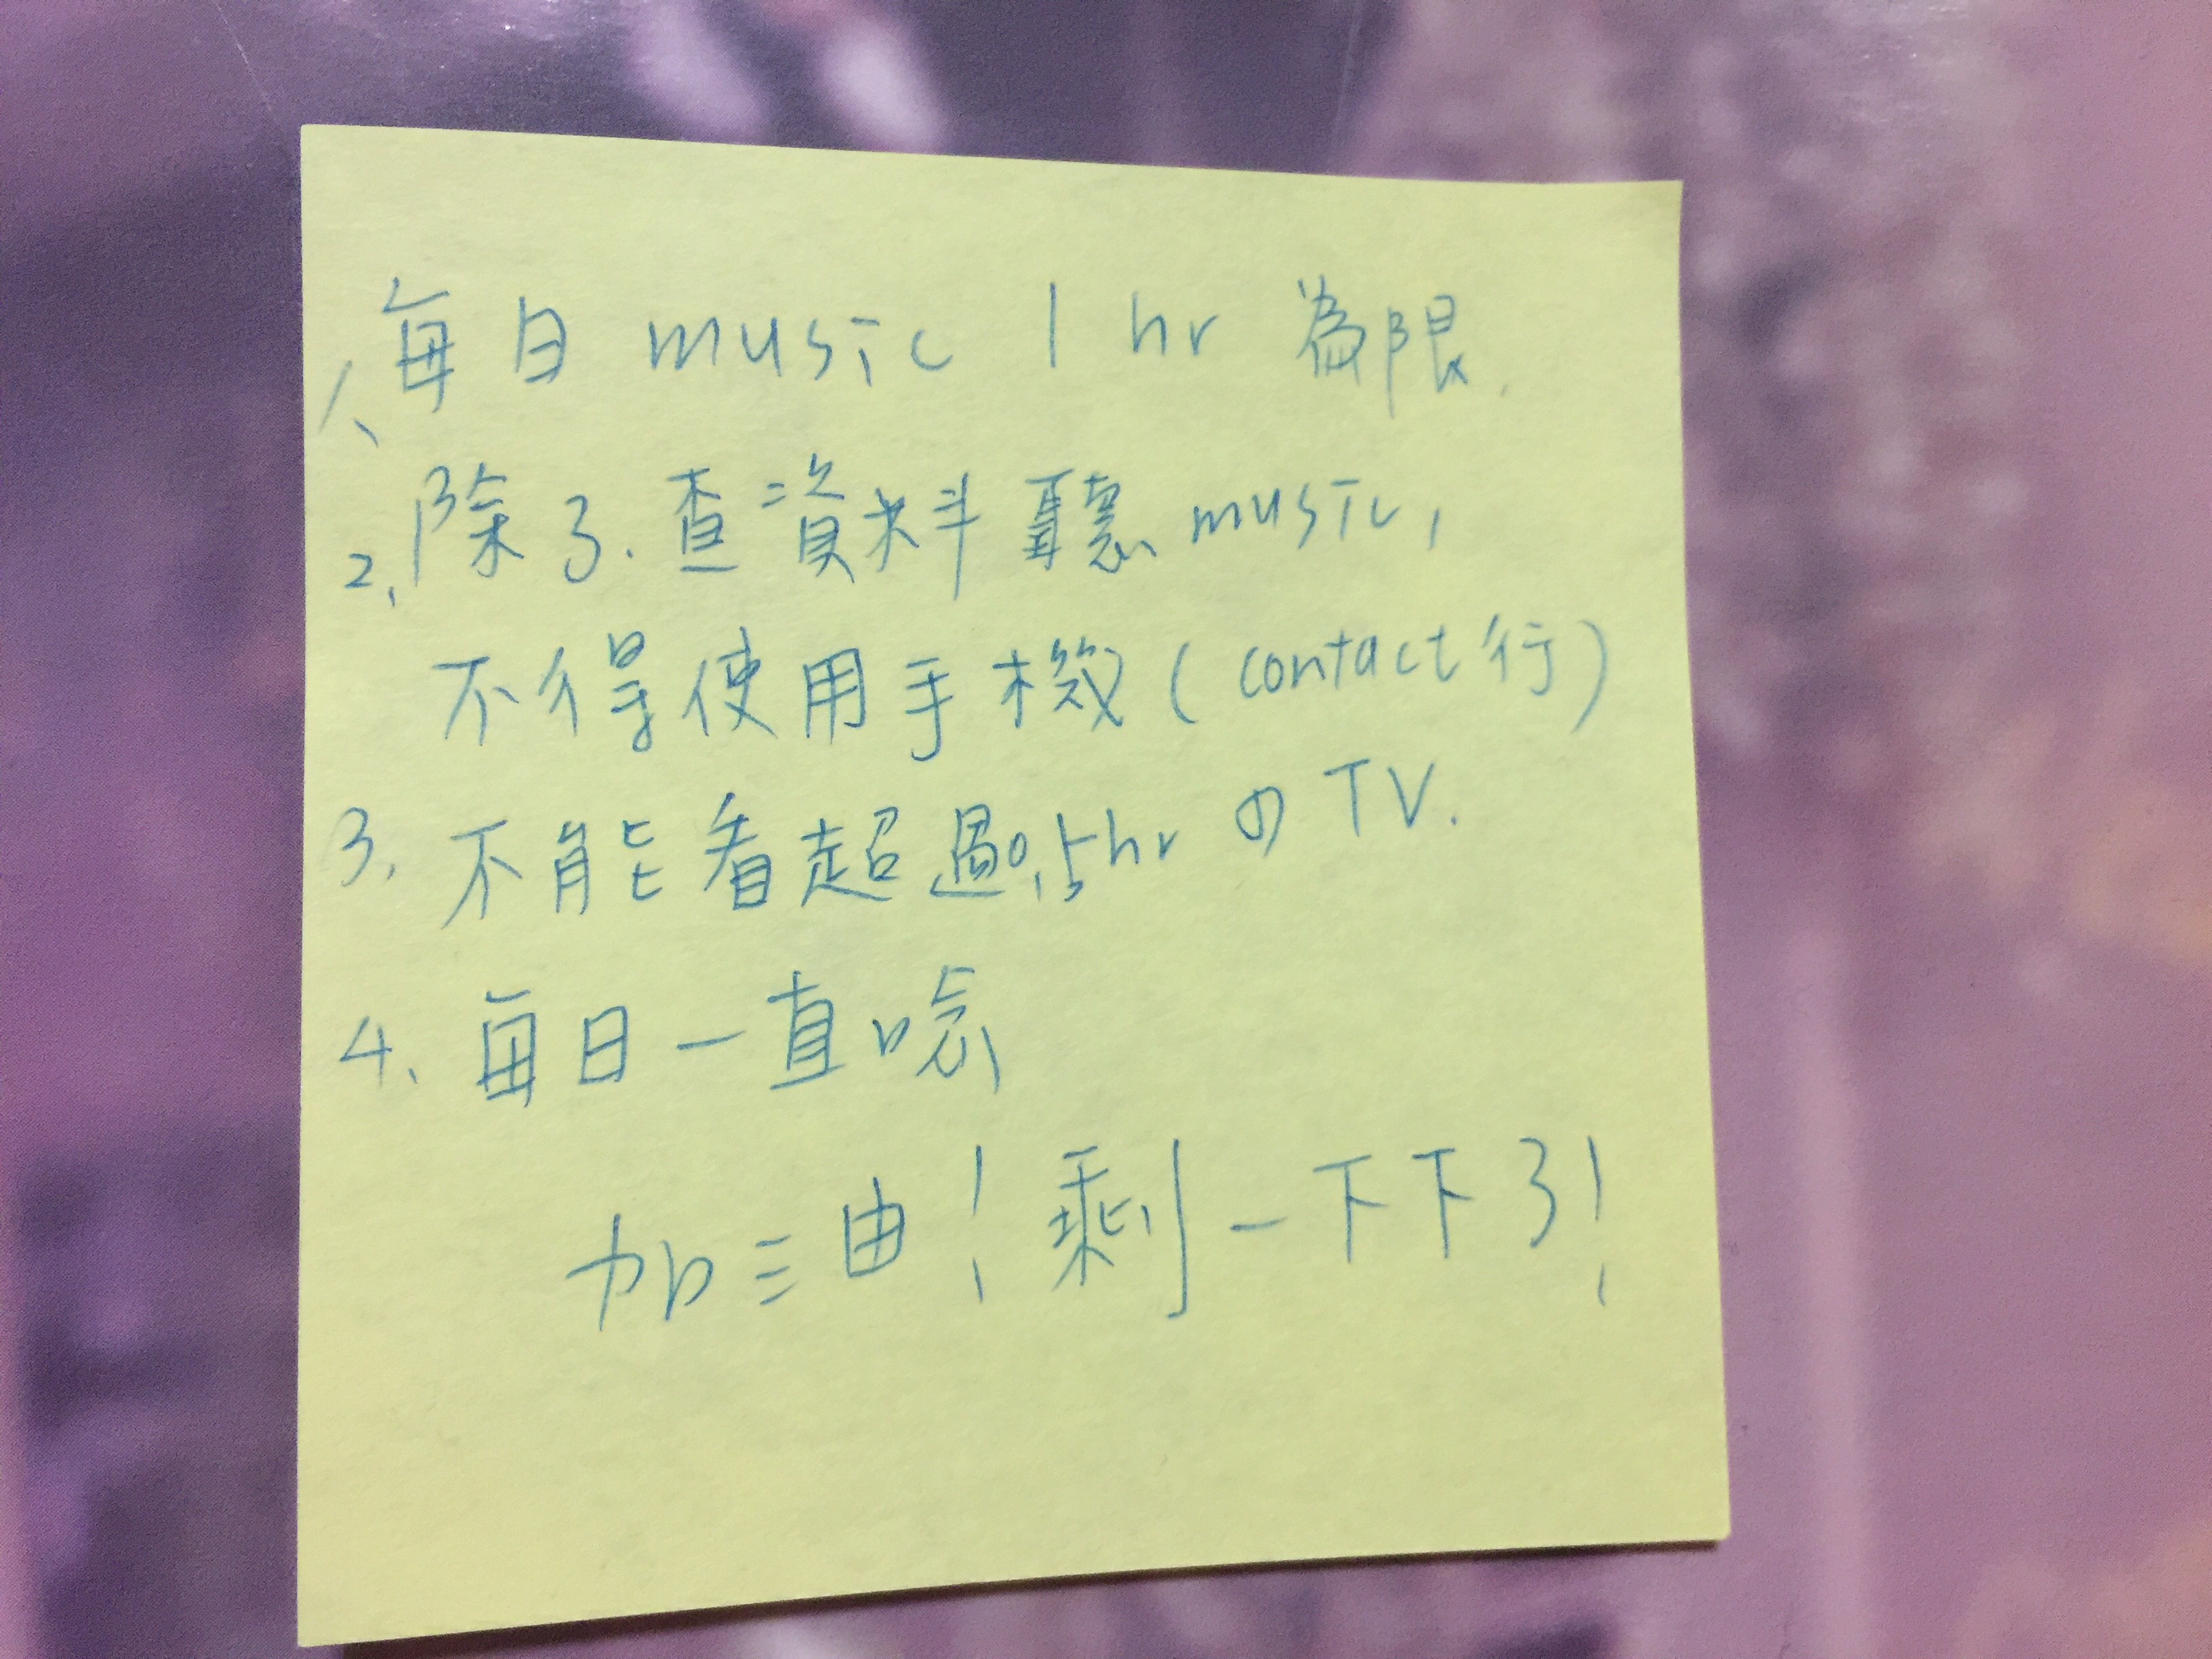 1、每日 music 1 hr 為限.
2、除了.查資料聽 music,
不得使用手機(contact行)
3、不能看超過0.5hr の TV.
4、每日一直唸
加油!剩一下下了!